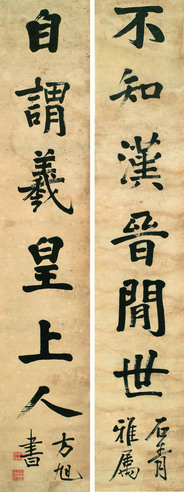 不知漢晉閒世
石青
雅屬
自謂羲皇上人
方旭
書